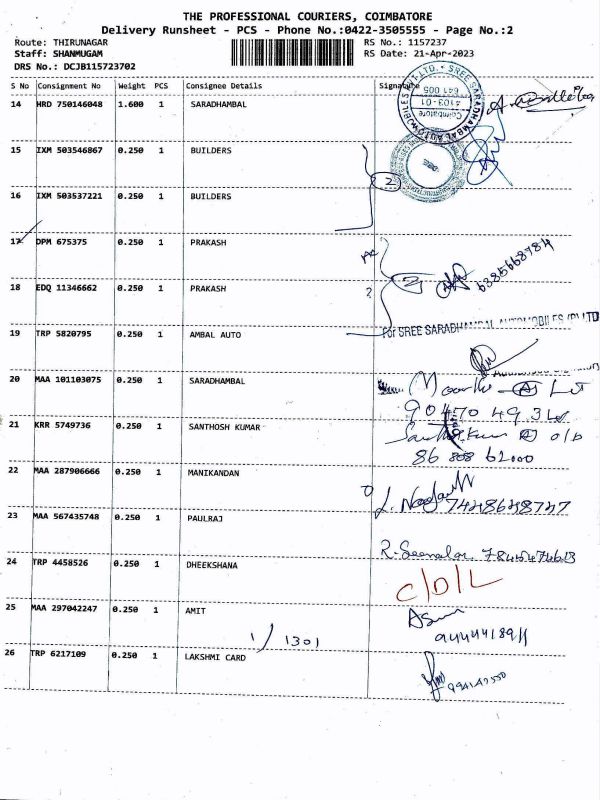 THE PROFESSIONAL COURIERS, COIMBATORE
Delivery Runsheet - PCS - Phone No.:0422-3505555 - Page No.:2
Route: THIRUNAGAR RS No.: 1157237
Staff: SHANMUGAM RS Date: 21-Apr-2023
DRS No.: DCJB115723702
S No Consignment No Weight PCS Consignee Details Signature
14 HRD 750146048 1.600 1 SARADHAMBAL
SREE SARADHAMBAL AUTOMOBILES PVT. LTD.
4103-01
641 005
Coimbatore
15 IXM 503546867 0.250 1 BUILDERS
2
16 IXM 503537221 0.250 1 BUILDERS
17 DPM 675375 0.250 1 PRAKASH
6385668784
18 EDQ 11346662 0.250 1 PRAKASH
2
?
19 TRP 5820795 0.250 1 AMBAL AUTO
For SREE SARADHAMBAL AUTOMOBILES (P) LTD
20 MAA 101103075 0.250 1 SARADHAMBAL
90470 49
21 KRR 5749736 0.250 1 SANTHOSH KUMAR
86 808 62000
22 MAA 287906666 0.250 1 MANIKANDAN
7448648747
23 MAA 567435748 0.250 1 PAULRAJ
24 TRP 4458526 0.250 1 DHEEKSHANA
C/D/L
25 MAA 297042247 0.250 1 AMIT
1/1301
26 TRP 6217109 0.250 1 LAKSHMI CARD